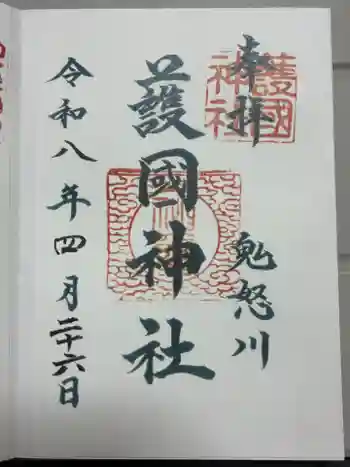 奉拝
鬼怒川
護國神社
令和八年四月二十六日
護國
神社